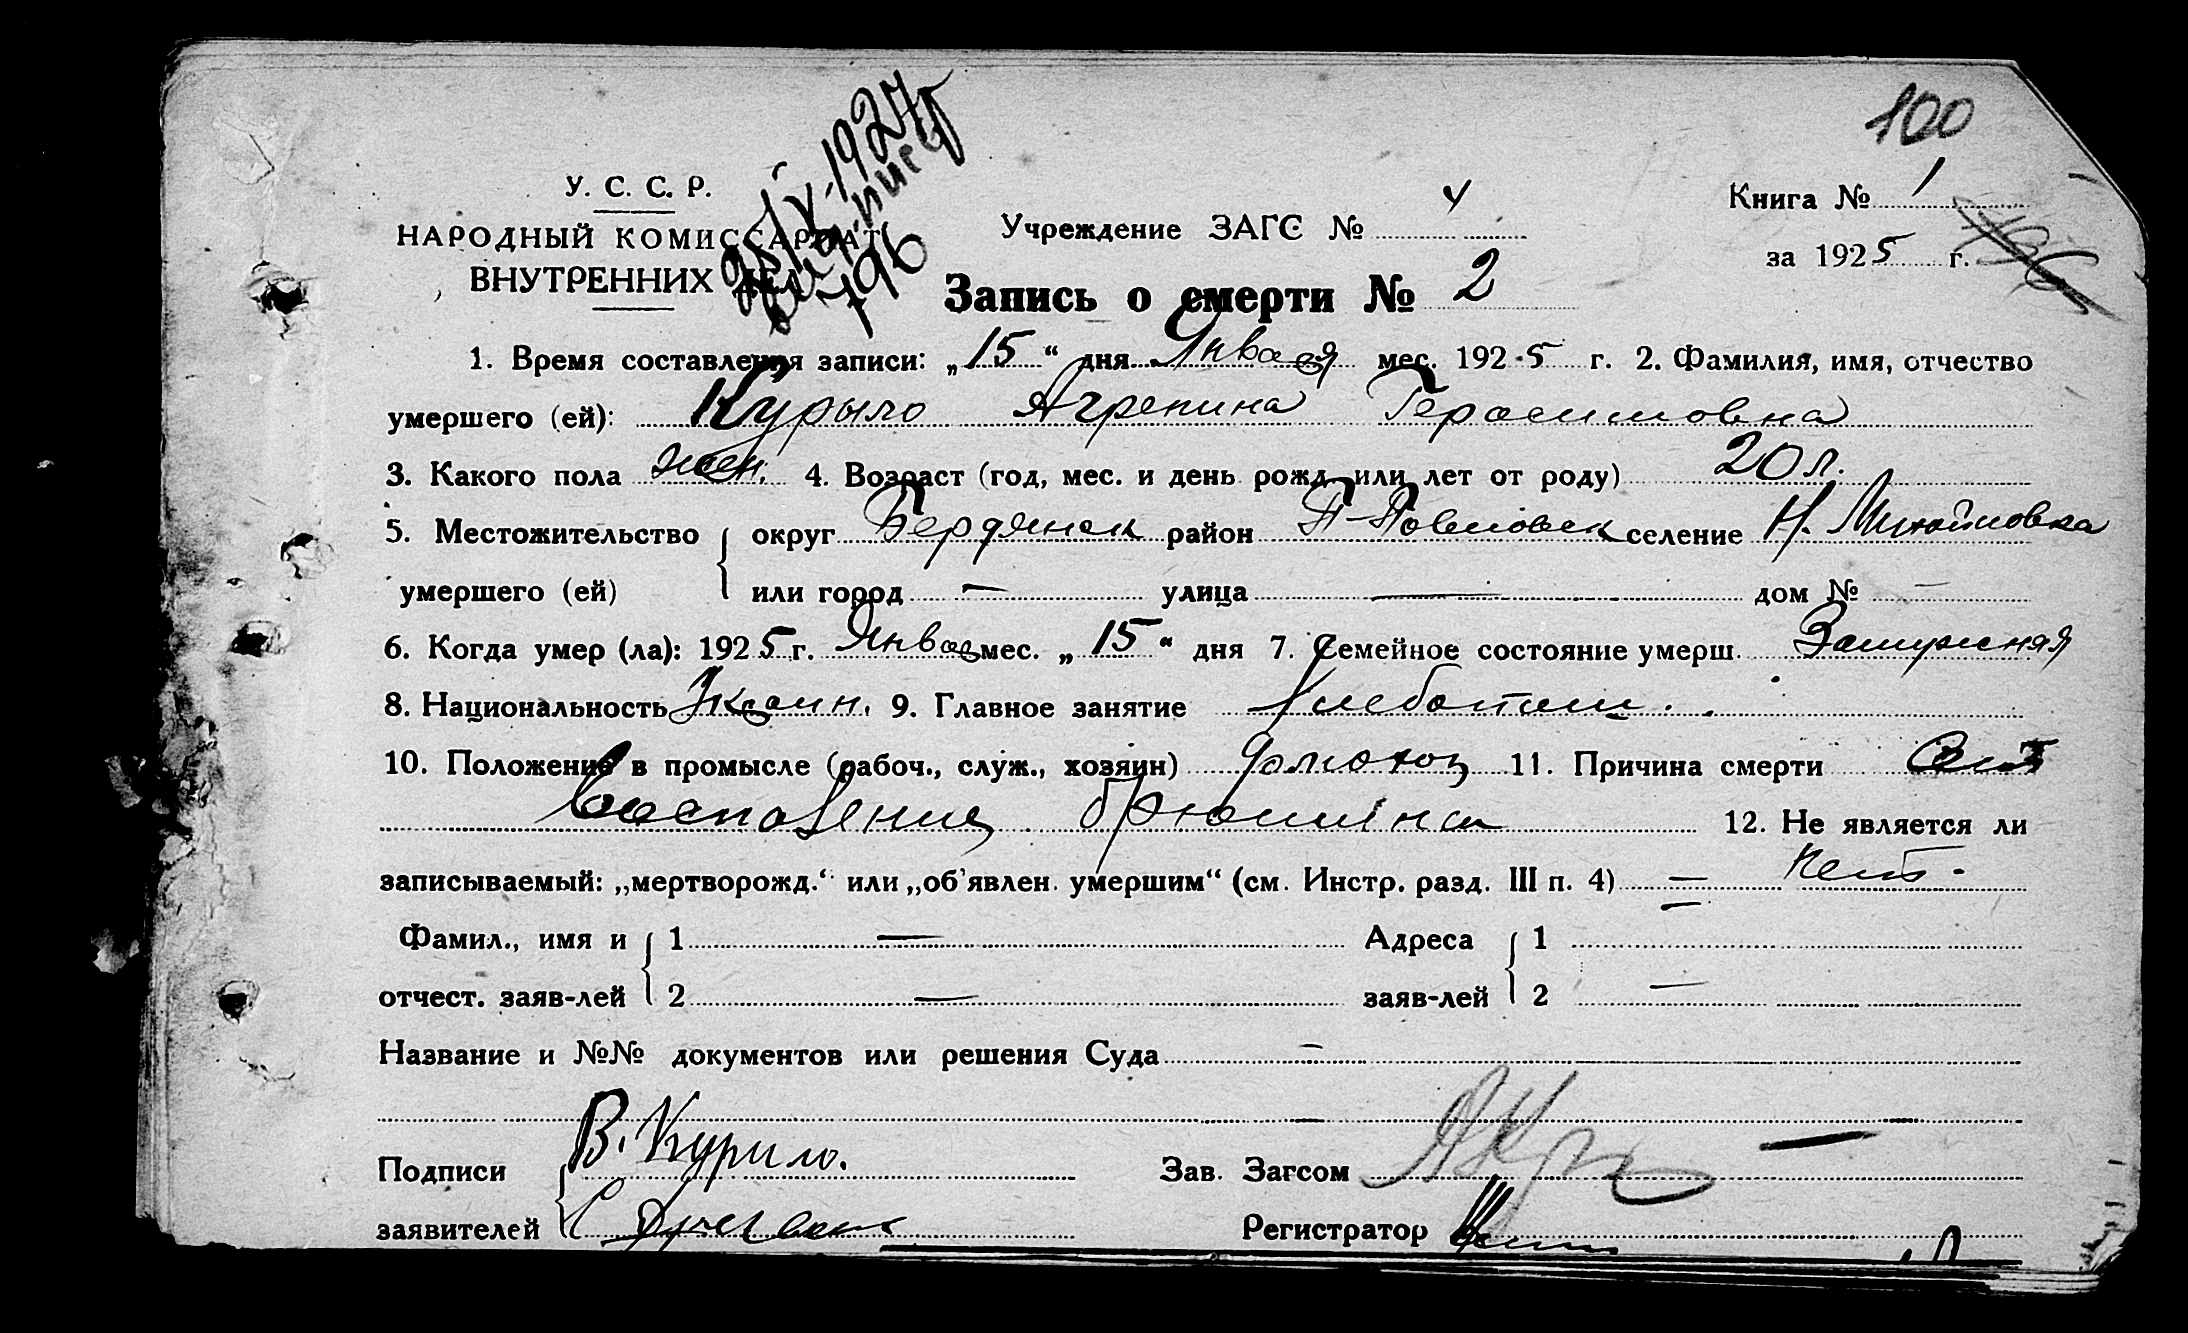 100
У. С. С. Р.
НАРОДНЫЙ КОМИССАРИАТ
ВНУТРЕННИХ ДЕЛ
25/X-1927
796
Учреждение ЗАГС № 4
Книга № 1
за 1925 г.
Запись о смерти № 2
1. Время составления записи: „15“ дня Января мес. 1925 г. 2. Фамилия, имя, отчество
умершего (ей): Курыло Агрепина Герасимовна
3. Какого пола жен. 4. Возраст (год, мес. и день рожд. или лет от роду) 20 л.
5. Местожительство округ Бердянск район селение Н. Михайловка
умершего (ей) или город — улица — дом № —
6. Когда умер (ла): 1925 г. Январ мес. „15“ дня 7. Семейное состояние умерш. Замужная
8. Национальность Украин. 9. Главное занятие Хлебопаш.
10. Положение в промысле (рабоч., служ., хозяин) домохоз 11. Причина смерти
Воспаление брюшины 12. Не является ли
записываемый: „мертворожд.“ или „об’явлен. умершим“ (см. Инстр. разд. III п. 4) — Нет.
Фамил., имя и 1 — Адреса 1 —
отчест. заяв-лей 2 — заяв-лей 2 —
Название и №№ документов или решения Суда —
Подписи В. Курило. Зав. Загсом
заявителей Регистратор